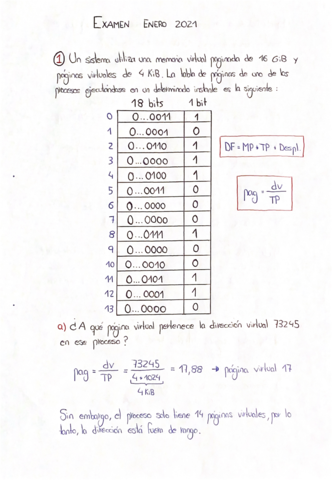 EXAMEN ENERO 2021
① Un sistema utiliza una memoria virtual paginada de 16 GiB y
páginas virtuales de 4 KiB. La tabla de páginas de uno de los
procesos ejecutándose en un determinado instante es la siguiente:
18 bits 1 bit
0 0...0011 1
1 0...0001 0
2 0...0110 1
3 0...0000 1
4 0...0100 1
5 0...0011 0
6 0...0000 0
7 0...0000 0
8 0...0111 1
9 0...0000 0
10 0...0010 0
11 0...0101 1
12 0...0001 1
13 0...0000 0
DF = MP * TP + Despl.
pag = dv / TP
a) ¿A qué página virtual pertenece la dirección virtual 73245
en ese proceso?
pag = dv / TP = 73245 / 4 * 1024 = 17,88 → página virtual 17
4 KiB
Sin embargo, el proceso solo tiene 14 páginas virtuales, por lo
tanto, la dirección está fuera de rango.